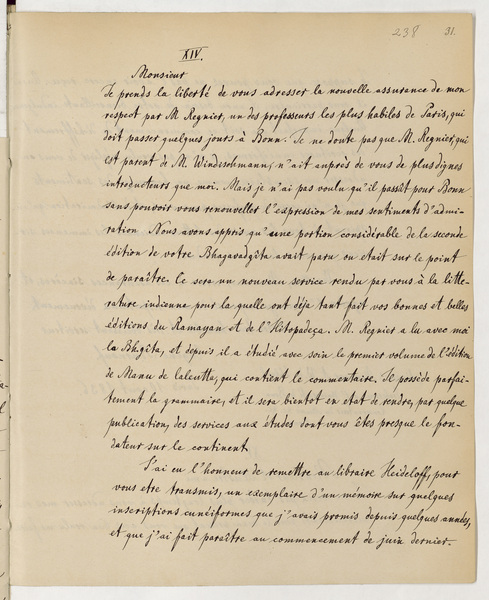 238 31.
XIV.
Monsieur
Je prends la liberté de vous adresser la nouvelle assurance de mon
respect par M. Regnier, un des professeurs les plus habiles de Paris, qui
doit passer quelques jours à Bonn. Je ne doute pas que M. Regnier, qui
est parent de M. Windischmann, n'ait auprès de vous de plus dignes
introducteurs que moi. Mais je n'ai pas voulu qu'il passât pour Bonn
sans pouvoir vous renouveller l'expression de mes sentiments d'admi-
ration. Nous avons appris qu'une portion considérable de la seconde
édition de votre Bhagavadgîta avait paru ou etait sur le point
de paraître. Ce sera un nouveau service rendu par vous à la litte-
rature indienne pour la quelle ont déja tant fait vos bonnes et belles
éditions du Ramayan et de l'Hitopadeça. M. Regnier a lu avec moi
la Bh.gîta, et depuis il a étudié avec soin le premier volume de l'édition
de Manu de Calcutta, qui contient le commentaire. Il possède parfai-
tement la grammaire, et il sera bientot en etat de rendre, par quelque
publication, des services aux études dont vous êtes presque le fon-
dateur sur le continent
J'ai eu l'honneur de remettre au libraire Heideloff, pour
vous etre transmis, un exemplaire d'un mémoire sur quelques
inscriptions cunéiformes que j'avais promis depuis quelques années,
et que j'ai fait paraître au commencement de juin dernier.